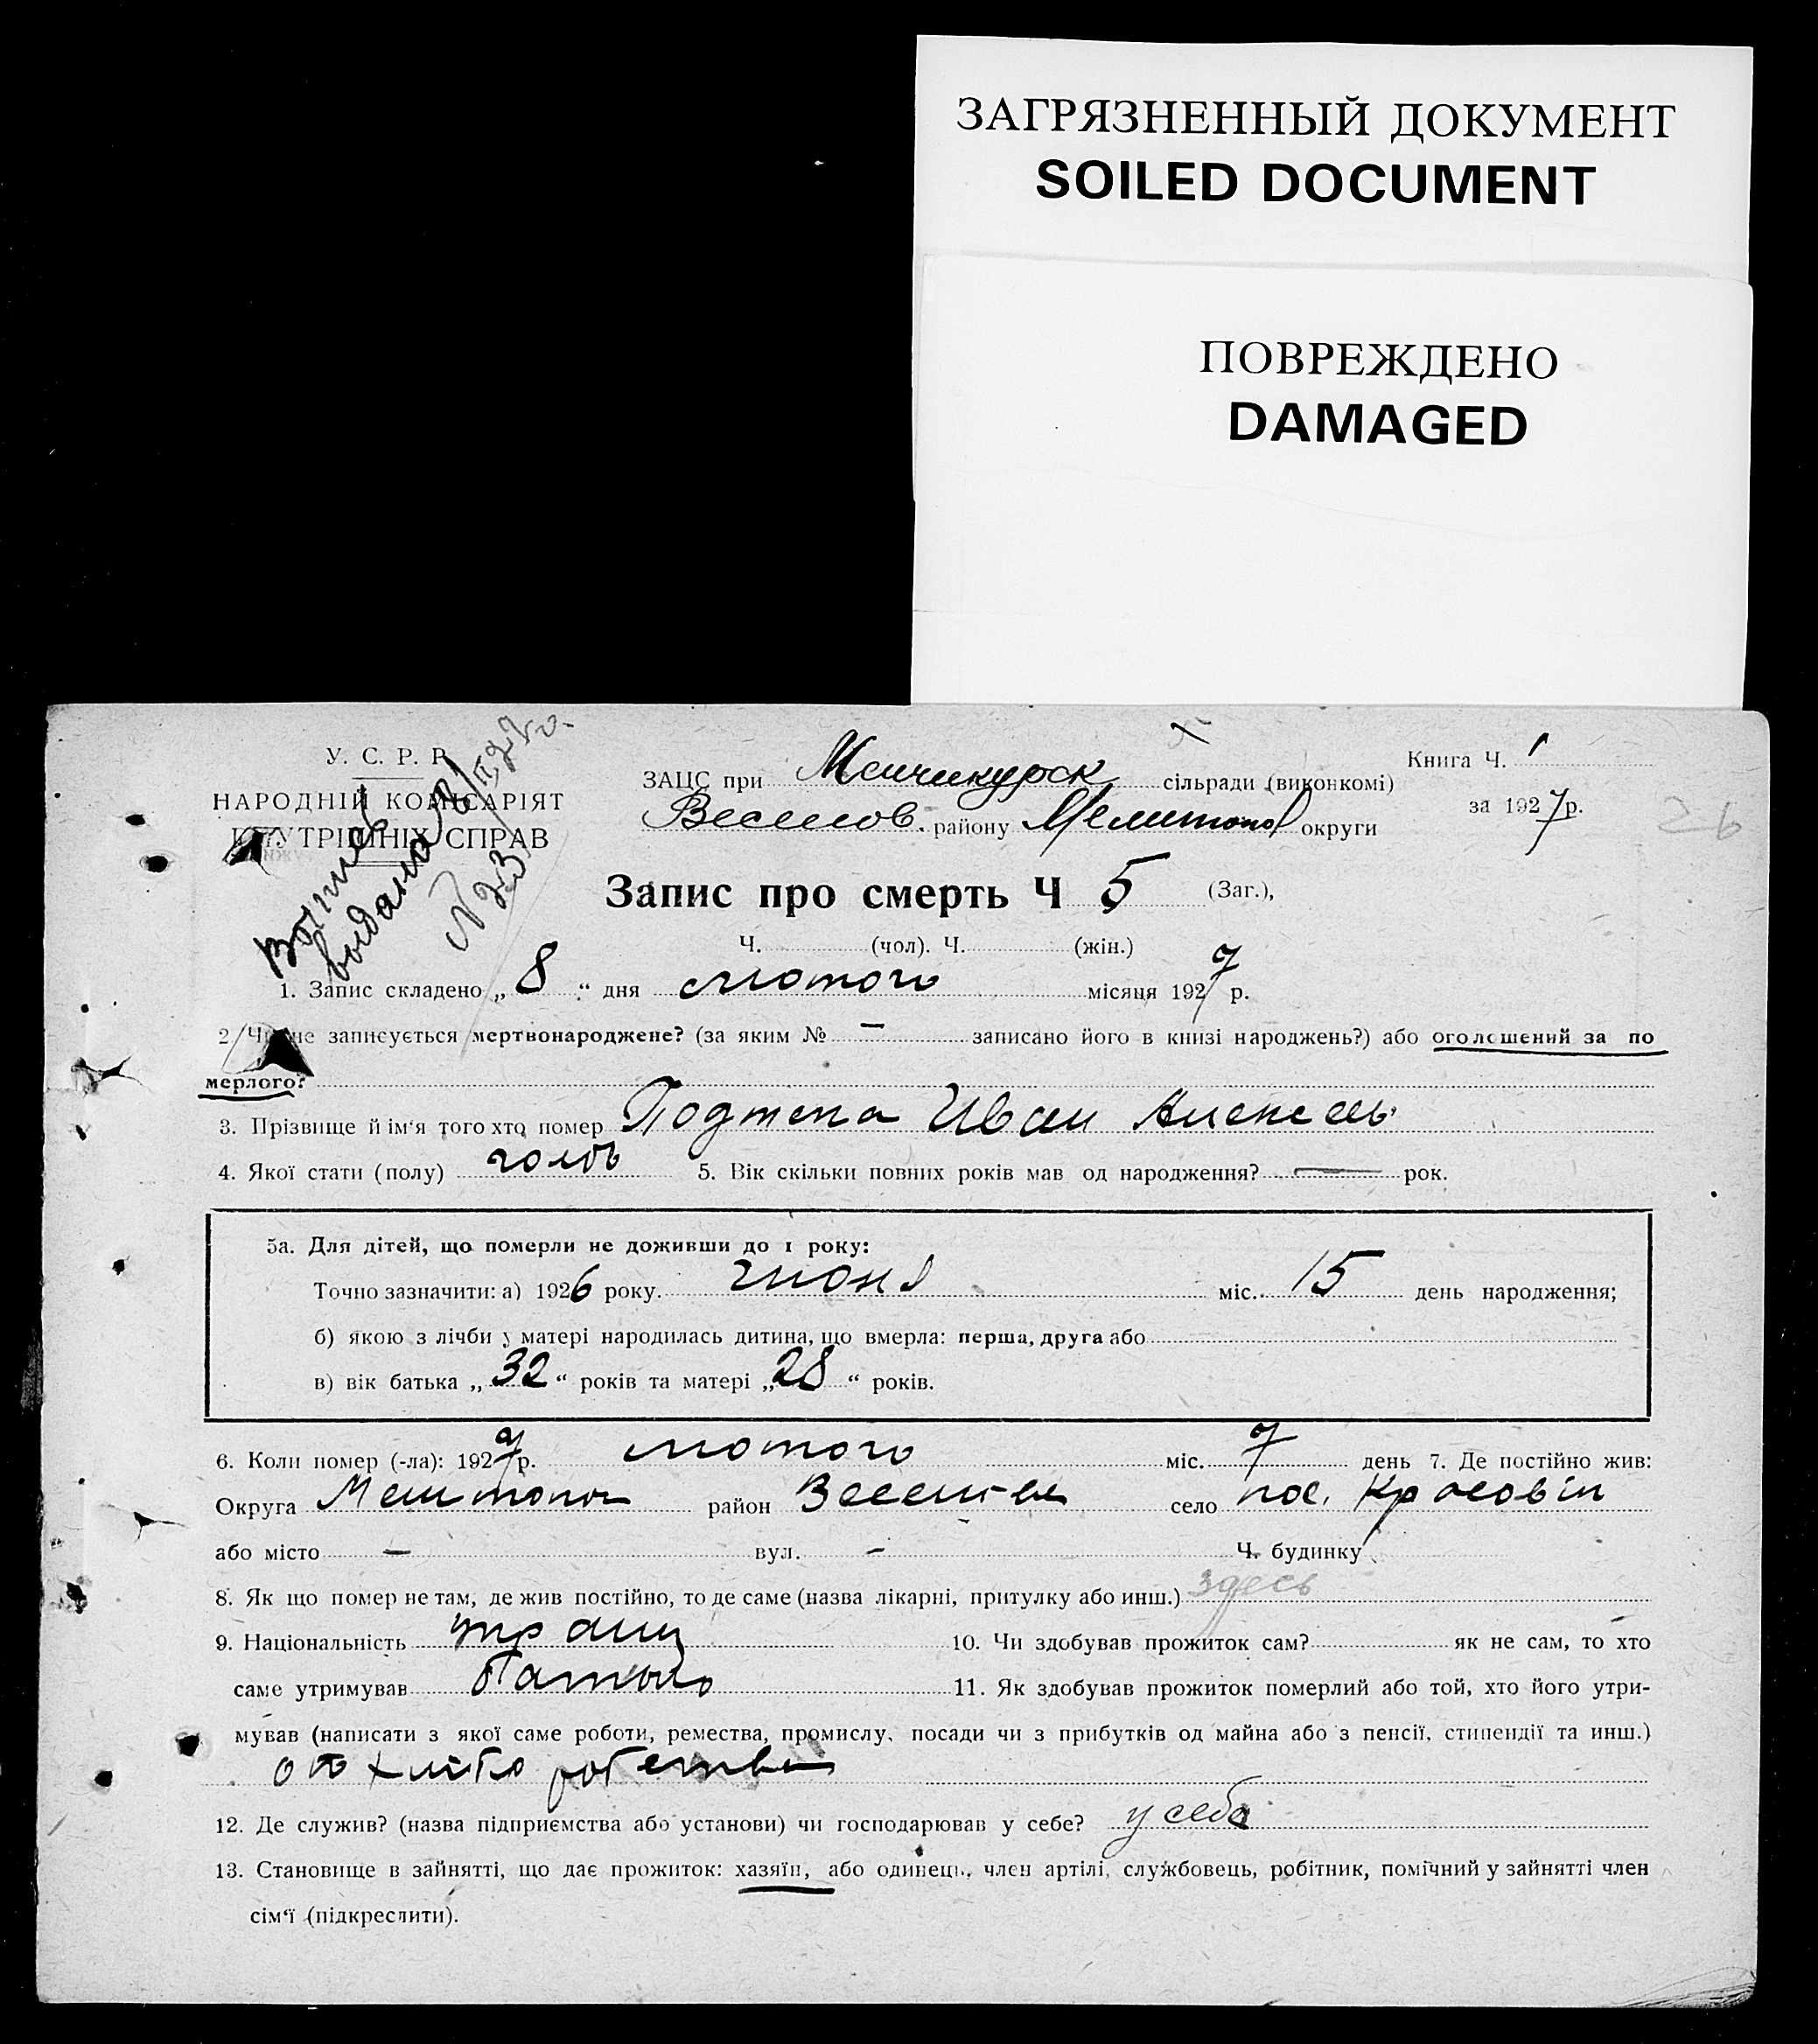 ЗАГРЯЗНЕННЫЙ ДОКУМЕНТ
SOILED DOCUMENT
ПОВРЕЖДЕНО
DAMAGED
У. С. Р. Р.
НАРОДНІЙ КОМІСАРІЯТ
ВНУТРІШНІХ СПРАВ
выдано
№ 23
ЗАЦС при Менчикурск сільради (виконкомі)
Веселов. району Мелитопол округи
Книга Ч. 1
за 1927 р.
26
Запис про смерть Ч 5 (Заг.),
Ч. (чол). Ч. (жін.)
1. Запис складено „ 8 “ дня лютого місяця 1927 р.
2. Чи не записується мертвонароджене? (за яким № — записано його в книзі народжень?) або оголошений за по
мерлого?
3. Прізвище й ім‘я того хто помер Иван Алексеев
4. Якої стати (полу) 5. Вік скільки повних років мав од народження? — рок.
5а. Для дітей, що померли не доживши до 1 року:
Точно зазначити: а) 1926 року. июня міс. 15 день народження;
б) якою з лічби у матері народилась дитина, що вмерла: перша, друга або
в) вік батька „ 32 “ років та матері „ 28 “ років.
6. Коли помер (-ла): 1927 р. лютого міс. 7 день 7. Де постійно жив:
Округа Мелитополь район село пос.
або місто — вул. — Ч. будинку
8. Як що помер не там, де жив постійно, то де саме (назва лікарні, притулку або инш.) здесь
9. Національність украин 10. Чи здобував прожиток сам? як не сам, то хто
саме утримував батько 11. Як здобував прожиток померлий або той, хто його утри-
мував (написати з якої саме роботи, ремества, промислу, посади чи з прибутків од майна або з пенсії, стипендії та инш.)
от хлібо робства
12. Де служив? (назва підприємства або установи) чи господарював у себе? у себе
13. Становище в зайнятті, що дає прожиток: хазяїн, або одинець, член артілі, службовець, робітник, помічний у зайнятті член
сім‘ї (підкреслити).